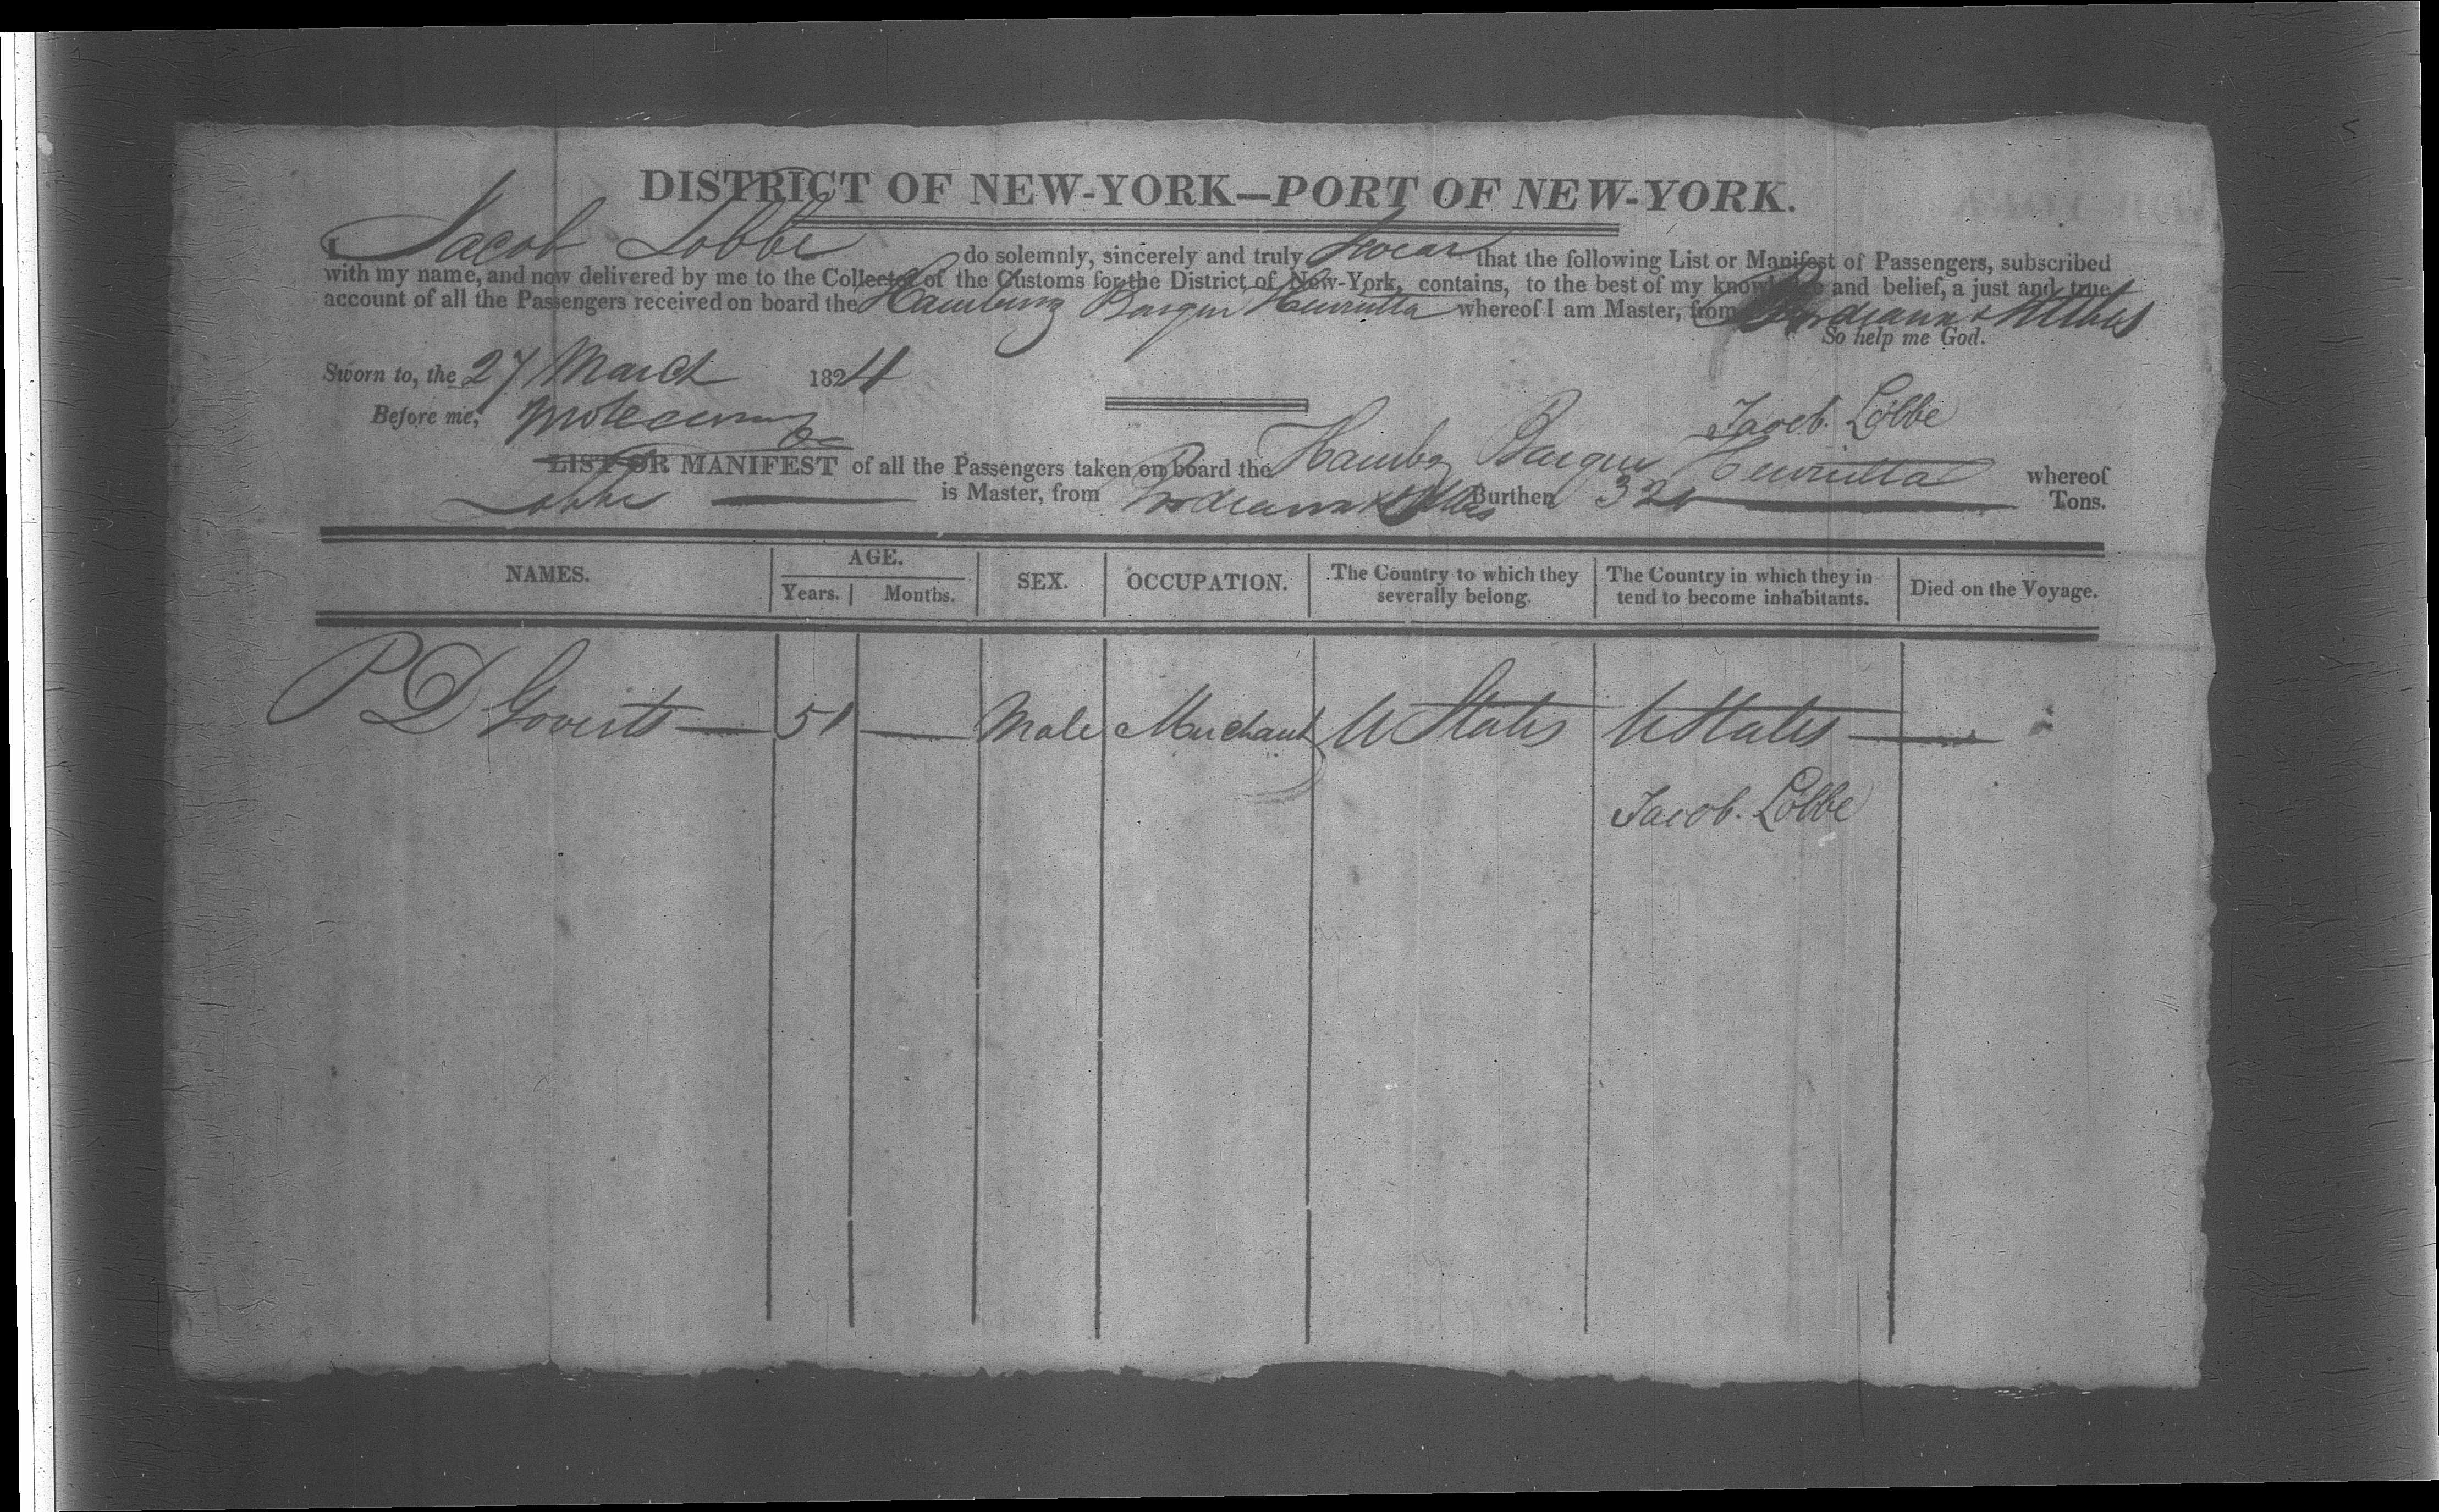 DISTRICT OF NEW-YORK—PORT OF NEW-YORK.
I Jacob Lobbe do solemnly, sincerely and truly Swear that the following List or Manifest of Passengers, subscribed
with my name, and now delivered by me to the Collector of the Customs for the District of New-York, contains, to the best of my knowledge and belief, a just and true
account of all the Passengers received on board the Hamburg Barque Henrietta whereof I am Master, from
So help me God.
Sworn to, the 27 March 1824
Before me,
Jacob. Lobbe
LIST OR MANIFEST of all the Passengers taken on board the Hambg Barque Henrietta whereof
Lobbe is Master, from Burthen 320 Tons.
NAMES. AGE. Years. Months. SEX. OCCUPATION. The Country to which they severally belong. The Country in which they in tend to become inhabitants. Died on the Voyage.
P D Goverts — 51 — Male Merchant U States U States —
Jacob. Lobbe